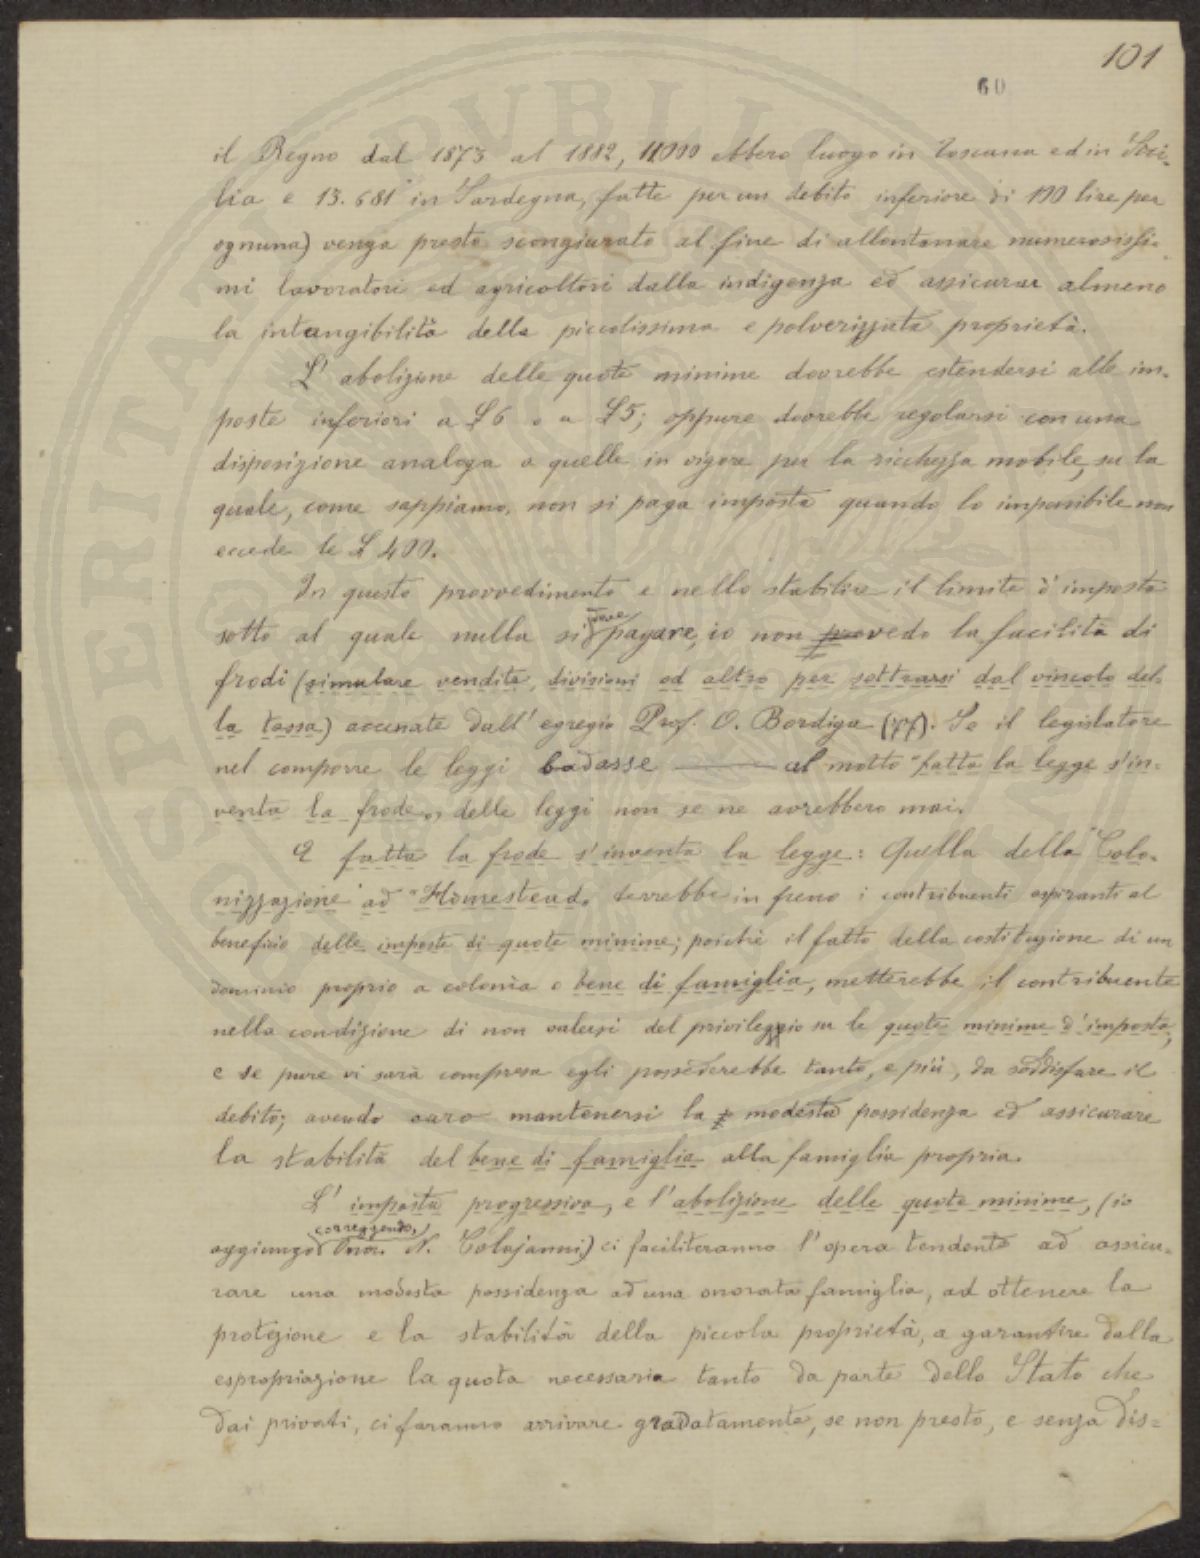 101
60
il Regno dal 1873 al 1882, 11000 ebbero luogo in Toscana ed in Sici-
lia e 13.681 in Sardegna, fatte per un debito inferiore di 100 lire per
ognuna) venga presto scongiurato al fine di allontanare numerosissi-
mi lavoratori ed agricoltori dalla indigenza ed assicurar almeno
la intangibilità della piccolissima e polverizzata proprietà.
L' abolizione delle quote minime dovrebbe estendersi alle im-
poste inferiori a £6 o a £5; oppure dovrebbe regolarsi con una
disposizione analoga a quelle in vigore per la ricchezza mobile, su la
quale, come sappiamo, non si paga imposta quando lo imponibile non
eccede le £ 400.
In questo provvedimento e nello stabilire il limite d'imposta
sotto al quale nulla si deve pagare, io non provedo la facilità di
frodi (simulare vendite, divisioni od altro per sottrarsi dal vincolo del-
la tassa) accennate dall' egregio Prof. O. Bordiga (77). Se il legislatore
nel comporre le leggi badasse al motto "fatta la legge s'in-
venta la frode", delle leggi non se ne avrebbero mai.
E fatta la frode s'inventa la legge: Quella della "Colo-
nizzazione" ad "Homestead" terrebbe in freno i contribuenti aspiranti al
beneficio delle imposte di quote minime; poichè il fatto della costituzione di un
dominio proprio a colonia o bene di famiglia, metterebbe il contribuente
nella condizione di non valersi del privileggio su le quote minime d'imposta,
e se pure vi sarà compresa egli possederebbe tanto, e più, da soddisfare il
debito; avendo caro mantenersi la modesta possidenza ed assicurare
la stabilità del bene di famiglia alla famiglia propria.
L' imposta progressiva, e l'abolizione delle quote minime, (io
aggiungo correggendo, l'onor. N. Colajanni) ci faciliteranno l'opera tendente ad assicu-
rare una modesta possidenza ad una onorata famiglia, ad ottenere la
protezione e la stabilità della piccola proprietà, a garantire dalla
espropriazione la quota necessaria tanto da parte dello Stato che
dai privati, ci faranno arrivare gradatamente, se non presto, e senza dis=